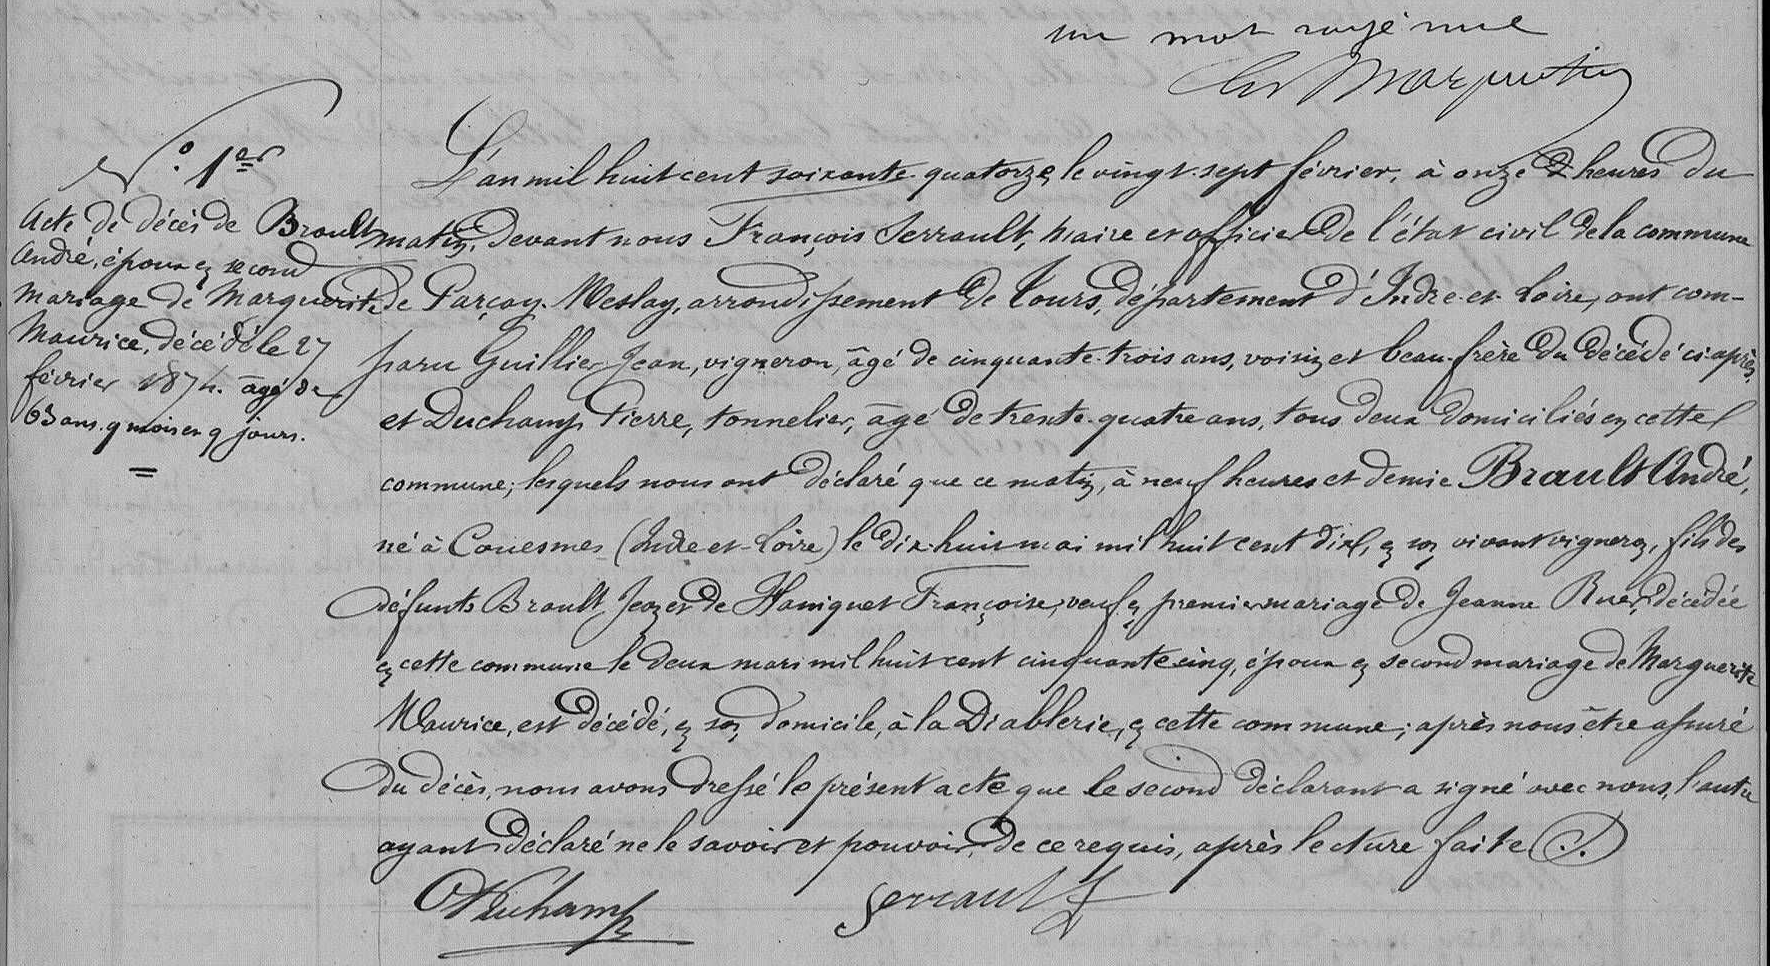 un mot rayé nul
N.° 1er
Acte de décès de Brault
André, époux en second
mariage de Marguerite
Maurice, décédé le 27
février 1874. âgé de
63 ans. 9 mois et 9 jours.
L'an mil huit cent soixante quatorze, le vingt-sept février, à onze heures du
matin, devant nous François Serrault, maire et officier de l'état civil de la commune
de Parçay-Meslay, arrondissement de Tours, département d'Indre-et-Loire, ont com-
paru Guillier Jean, vigneron, âgé de cinquante-trois ans, voisin et beau-frère du décédé ci après,
et Duchamp Pierre, tonnelier, âgé de trente-quatre ans, tous deux domiciliés en cette
commune; lesquels nous ont déclaré que ce matin, à neuf heures et demie Brault André,
né à Couesmes (Indre-et-Loire) le dix-huit mai mil huit cent dix, en son vivant vigneron, fils des
défunts Brault Jean et de Haniquet Françoise, veuf en premier mariage de Jeanne Ruer, décédée
en cette commune le deux mars mil huit cent cinquante cinq, époux en second mariage de Marguerite
Maurice, est décédé, en son domicile, à la Diablerie, en cette commune; après nous être assuré
du décès, nous avons dressé le présent acte que le second déclarant a signé avec nous, l'autre
ayant déclaré ne le savoir et pouvoir, de ce requis, après lecture faite.
Duchamp Serrault